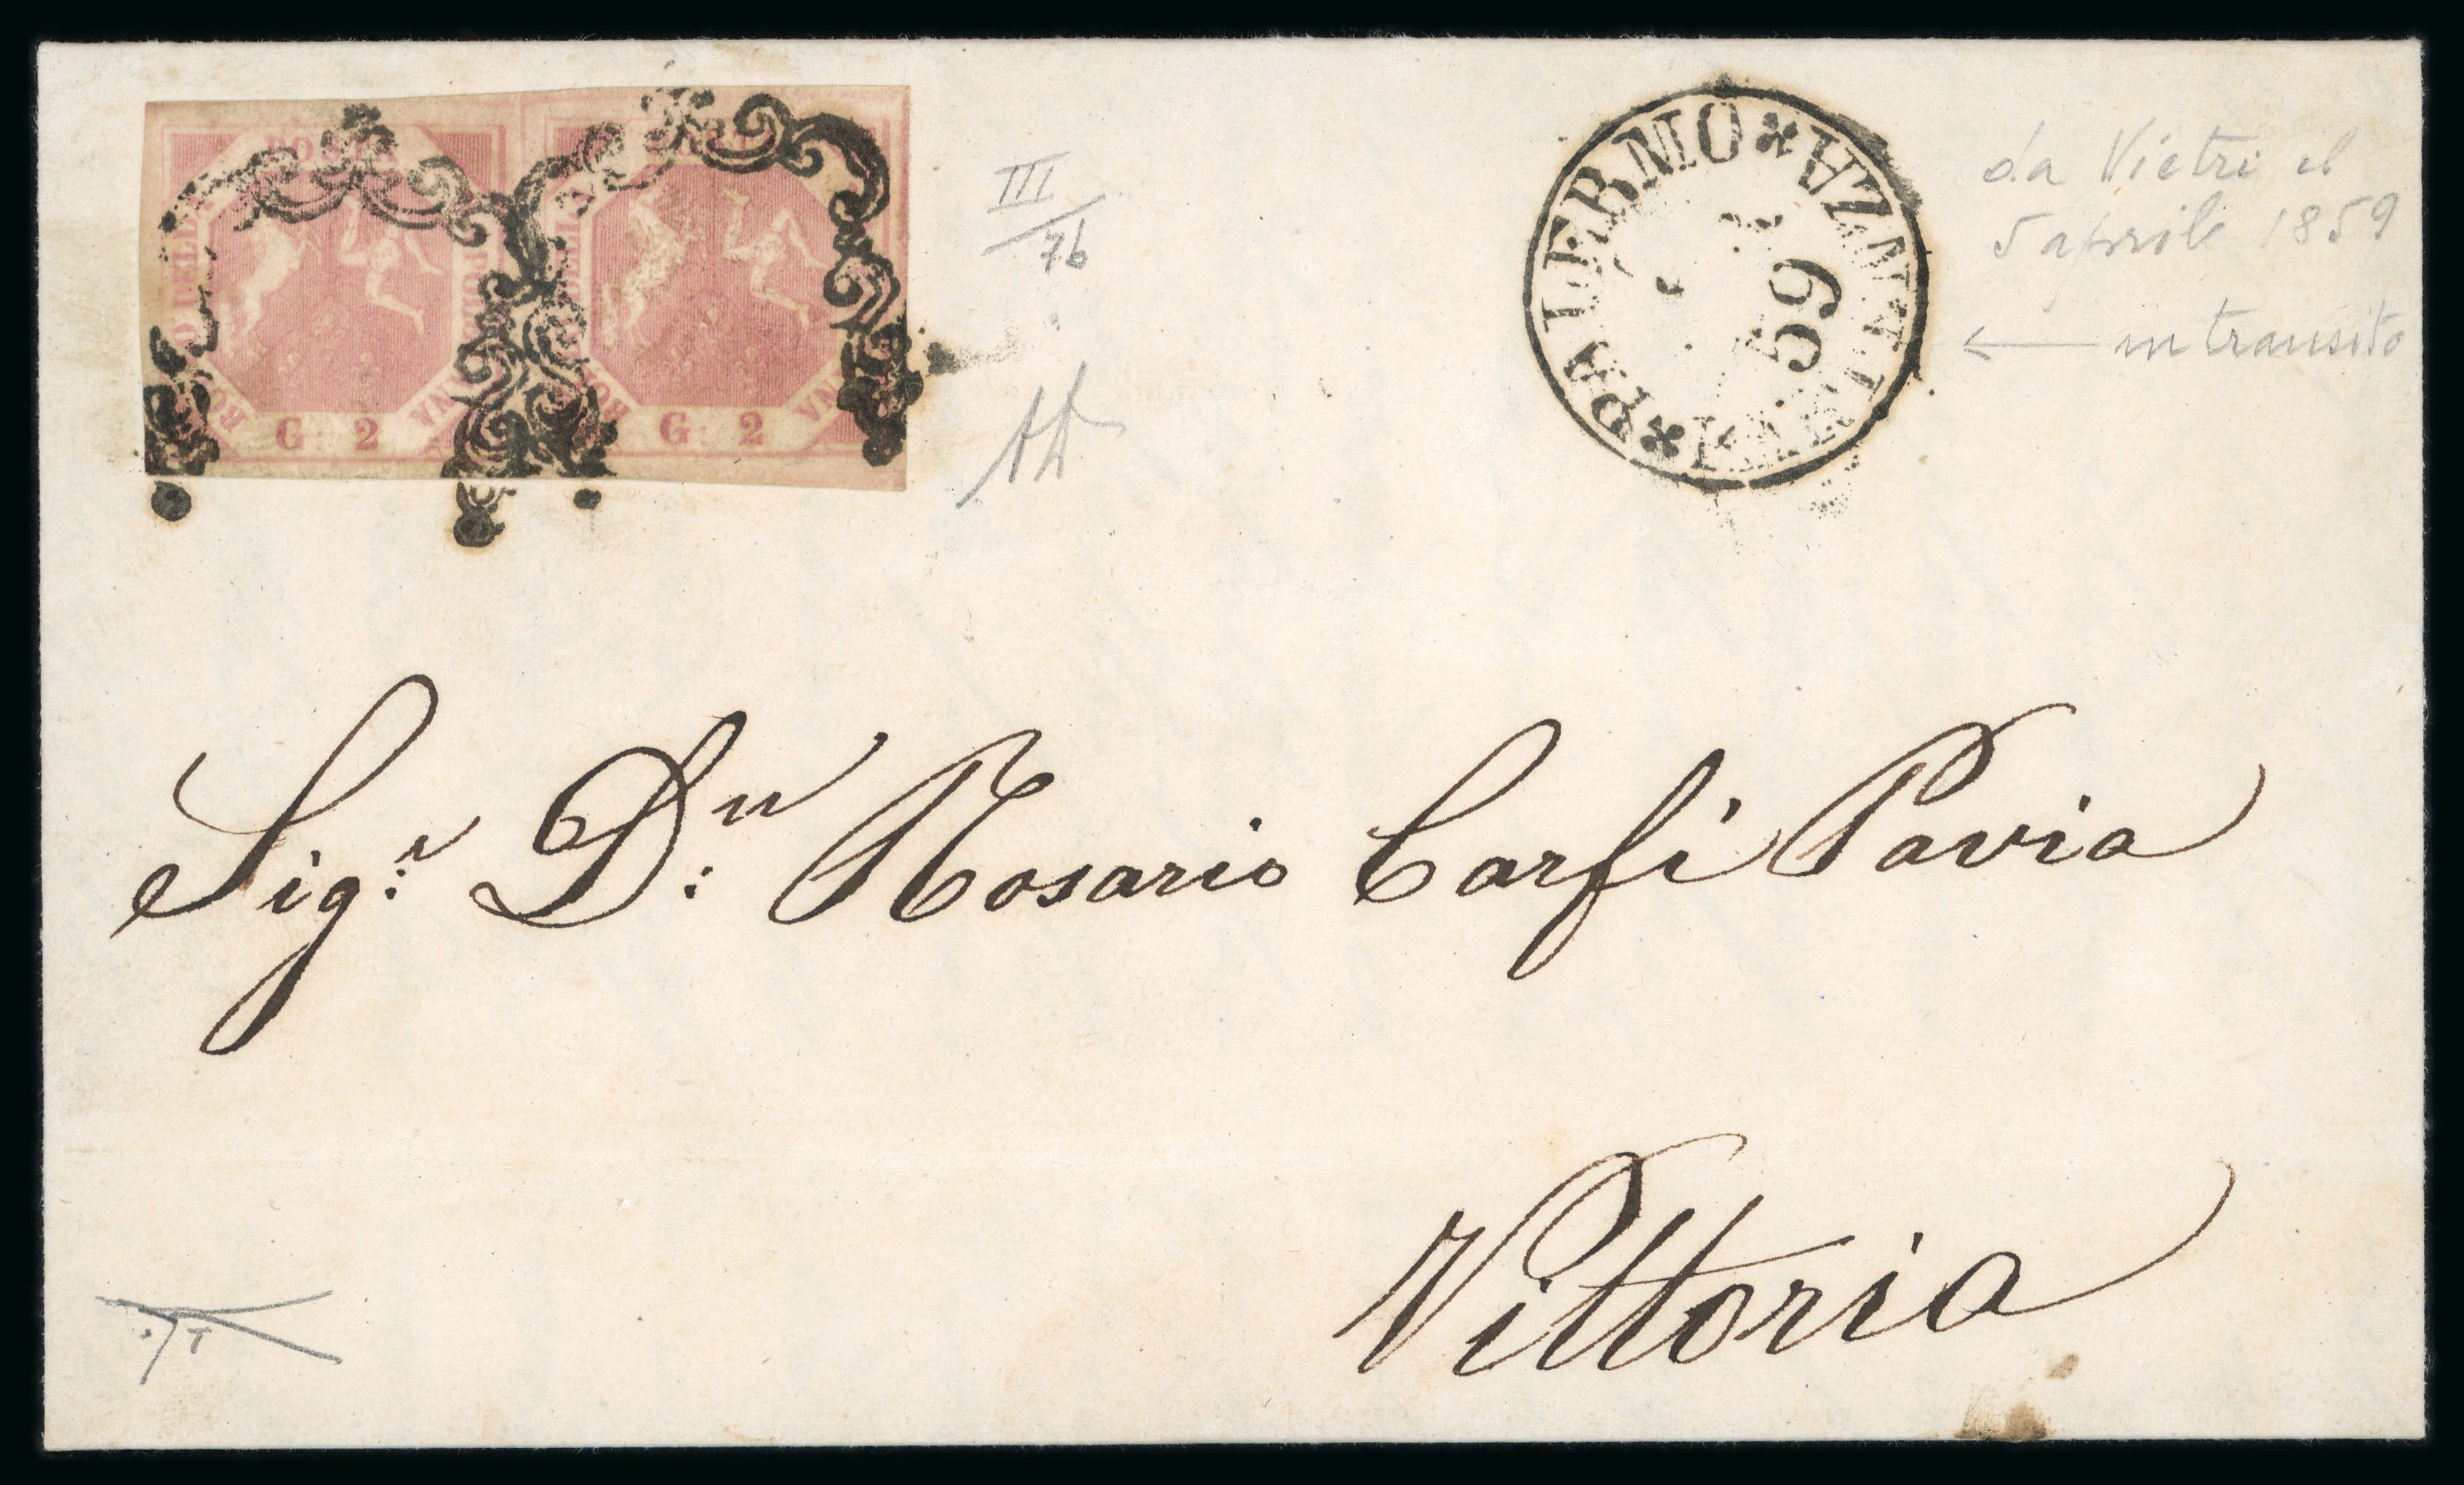 G. 2
G. 2
III
7b
PALERMO
59
da Vietri il
5 aprile 1859
← in transito
Sig:r D:n Rosario Carfì Pavia
Vittoria